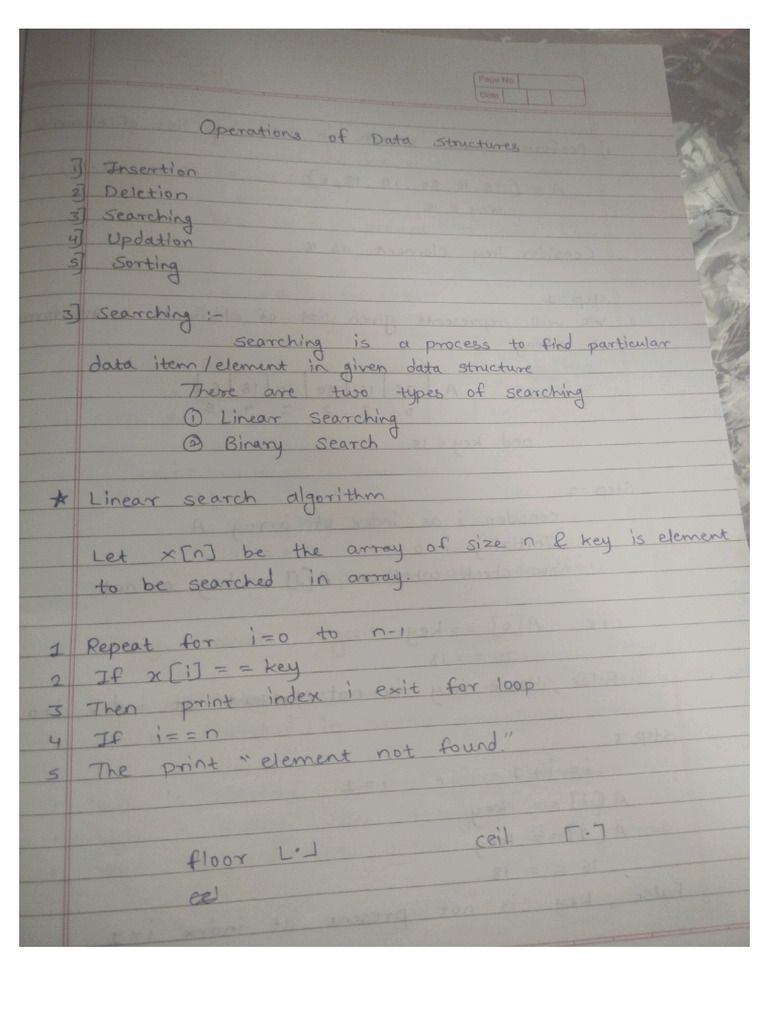 Page No
Date
Operations of Data structures
1] Insertion
2] Deletion
3] Searching
4] Updation
5] Sorting
3] Searching :-
searching is a process to find particular
data item/element in given data structure
There are two types of searching
① Linear searching
② Binary search
★ Linear search algorithm
Let x[n] be the array of size n & key is element
to be searched in array.
1 Repeat for i=0 to n-1
2 If x[i] = = key
3 Then print index i exit for loop
4 If i = = n
5 The print "element not found."
floor ⌊·⌋ ceil ⌈·⌉